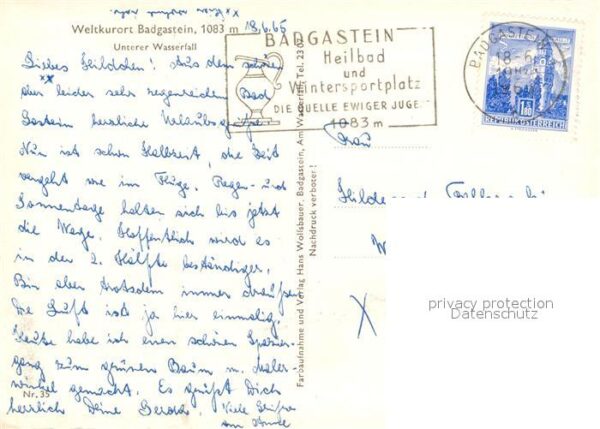 Weltkurort Badgastein, 1083 m 18.6.65
Unterer Wasserfall
Liebes Hildchen! Aus dem schönen
aber leider sehr regenreichen Bad
Gastein herzliche Urlaubsgrüße
Nun ist schon Halbzeit, die Zeit
vergeht wie im Fluge. Regen- und
Sonnentage halten sich bis jetzt
die Waage. Hoffentlich wird es
in der 2. Hälfte beständiger.
Bin aber trotzdem immer draußen
Die Luft ist ja hier einmalig.
Heute habe ich einen schönen Spazier-
gang zum grünen Baum m. Maler-
winkel gemacht. Es grüßt Dich
herzlich Deine Gerold. Viele Grüße
Nr. 35
Farbaufnahme und Verlag Hans Wollsbauer, Badgastein, Am Wasserfall, Tel. 2302
Nachdruck verboter!
BADGASTEIN
Heilbad
und
Wintersportplatz
DIE QUELLE EWIGER JUGE
1083 m
BADGASTEIN
18-6
1.80
REPUBLIK ÖSTERREICH
Frau
W
X
privacy protection
Datenschutz